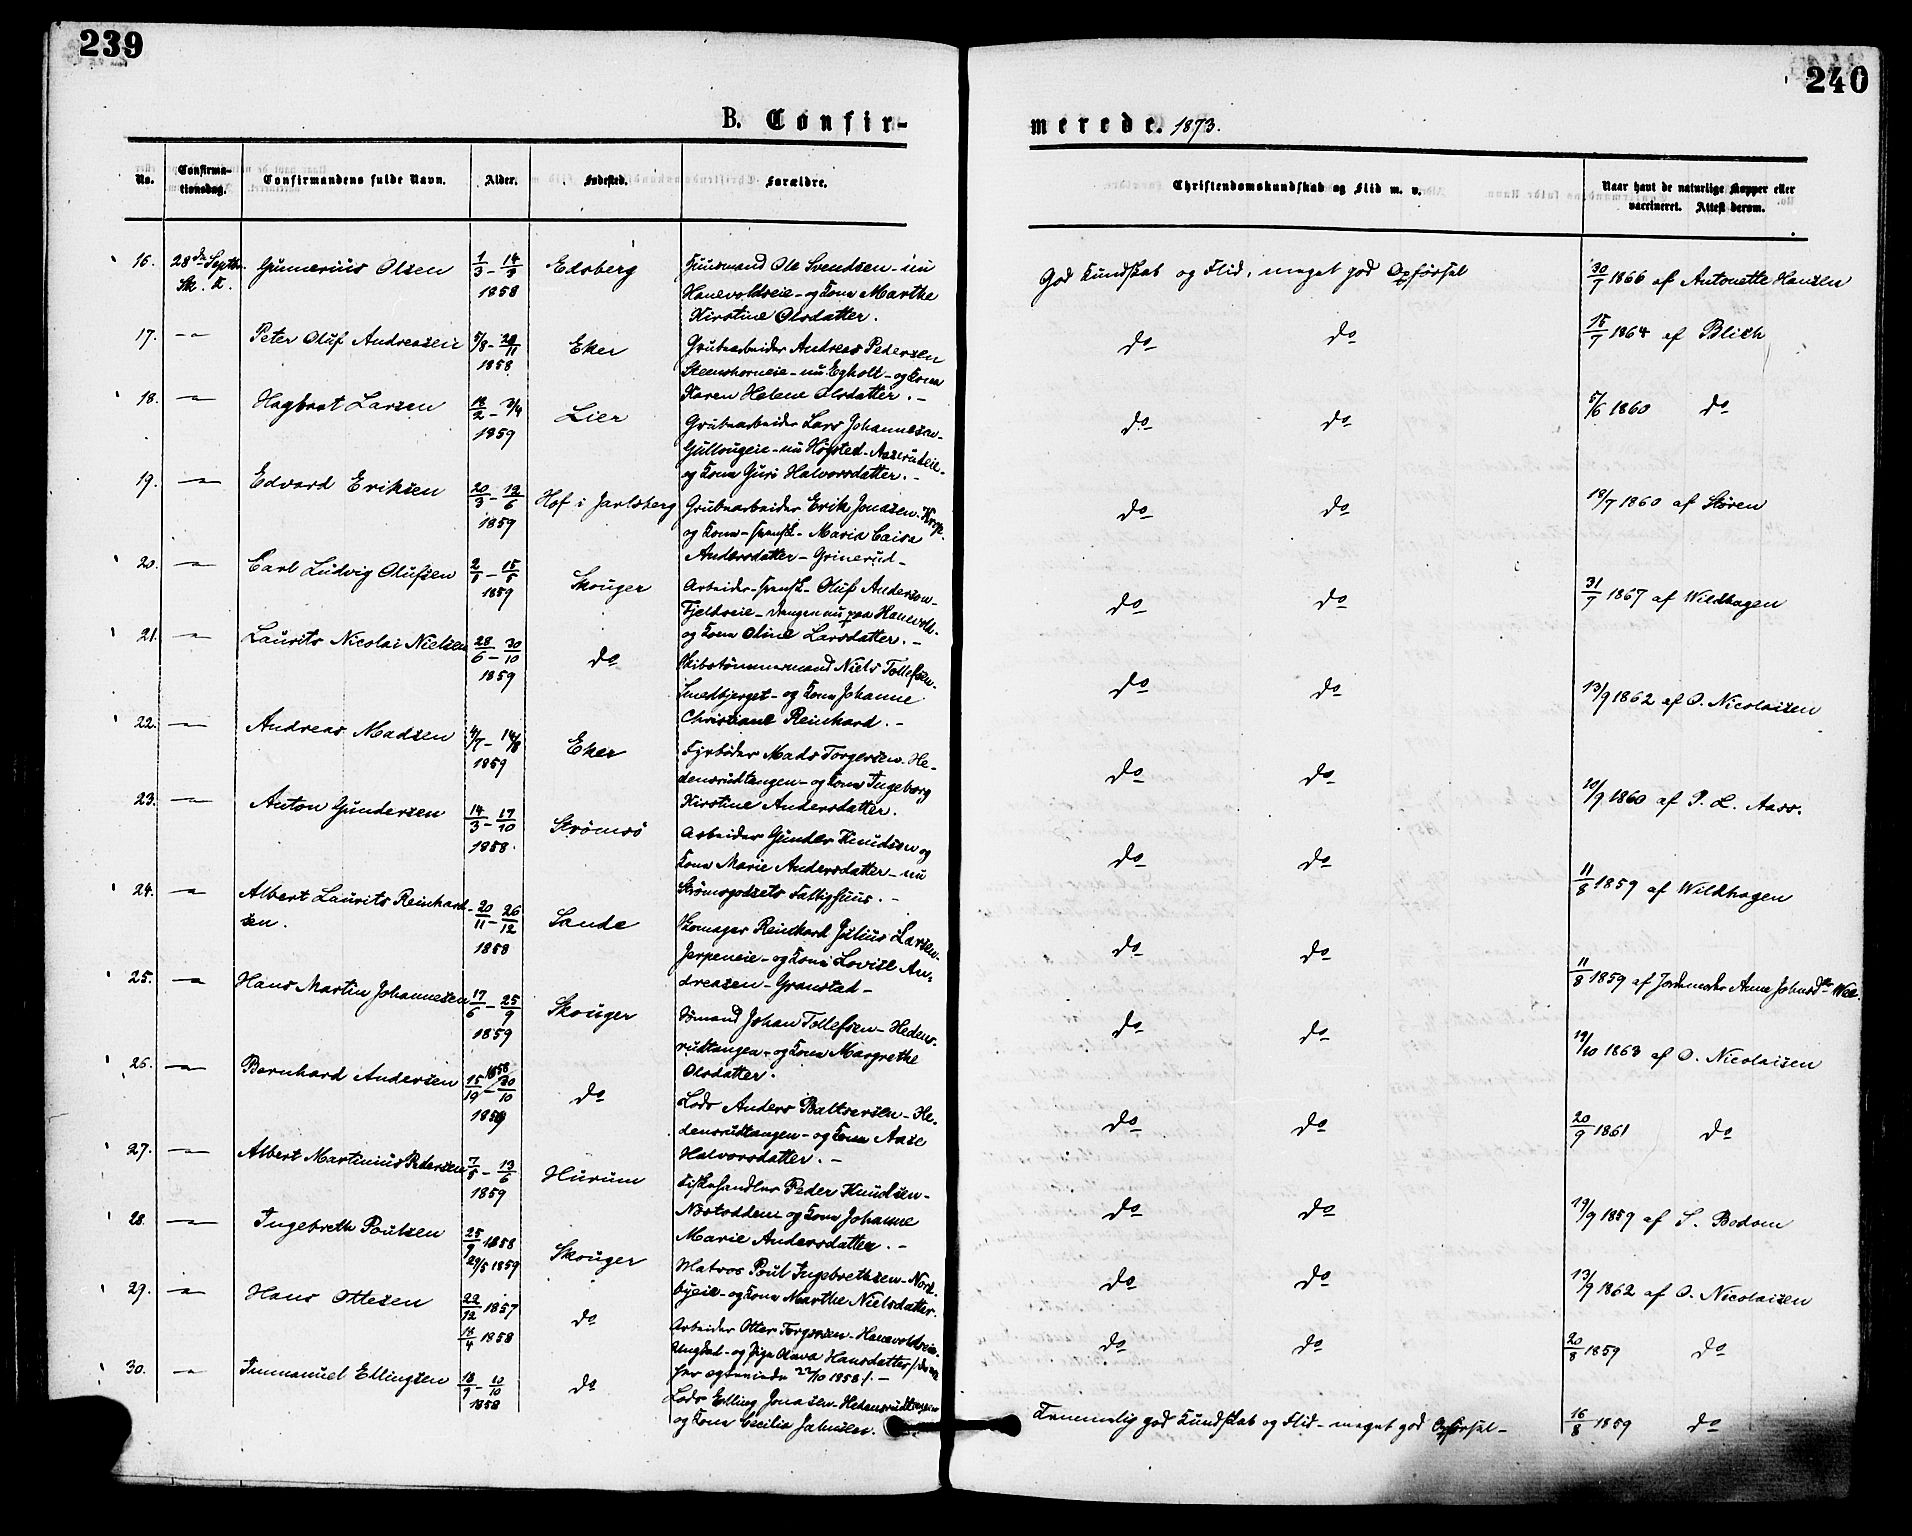 239
240
B. Confir-
merede. 1873.
No.
Confirma-
tionsdag.
Confirmandens fulde Navn.
Alder.
Fødested.
Forældre.
Christendomskundskab og Flid m. v.
Naar havt de naturlige Kopper eller
vaccineret. Attest derom.
16. 28de Septbr. Gunnerius Olsen 1/3 - 14/3 Edsberg Huusmand Ole Svendsen - nu
Sk. K. 1858 Hanevoldseie - og Kone Marthe
Kirstine Olsdatter.
God Kundskab og Flid, meget god Opførsel 30/7 1866 af Antonette Hansen
17. Peter Oluf Andreasen 5/8 - 28/11 Eker Grubearbeider Andreas Pedersen
1858 - nu Egholt - og Kone
Karen Helene Olsdatter. -
do do 15/7 1864 af Blich
18. Hagbart Larsen 18/2 - 3/4 Lier Grubearbeider Lars Johannesen -
1859 nu Høgsted -
og Kone Guri Halvorsdatter. -
do do 5/6 1860 do
19. Edvard Eriksen 20/3 - 19/6 Hof i Jarlsberg Grubearbeider Erik Jonasen
1859 og Kone - svensk - Maria Caisa
Andersdatter - Grinerud -
do do 18/7 1860 af Støren
20. Carl Ludvig Olufsen 2/1 - 15/5 Skouger Arbeider - svensk - Oluf Anderson -
1859 Fjeldseie - Drengen nu paa Hanevold -
og Kone Oline Larsdatter. -
do do 31/7 1867 af Wildhagen
21. Laurits Nicolai Nielsen 28/6 - 30/10 do Skibstømmermand Niels Tollefsen -
1859 Smedbjerget - og Kone Johanne
Christiane Reinhard. -
do do 13/9 1862 af O. Nicolaisen
22. Andreas Madsen 4/7 - 14/8 Eker Fyrbøder Mads Torgersen - He-
1859 densrudtangen - og Kone Ingeborg
Kirstine Andersdatter.
do do 10/9 1860 af P. L. Aass.
23. Anton Gundersen 14/3 - 17/10 Strømsø Arbeider Gunder Knudsen og
1858 Kone Marie Andersdatter - nu
Strømsgodsets Fattighuus. -
do do 11/8 1859 af Wildhagen
24. Albert Laurits Reinhard- 20/11 - 26/12 Sande Skomager Reinhard Julius Larsen -
sen. 1858 Jerpeneie - og Kone Lovise An-
dreasen - Granstad -
do do 11/8 1859 af Jordemoder Anne
25. Hans Martin Johannesen 17/6 - 25/9 Skouger Sømand Johan Tollefsen - Hedens-
1859 rudtangen - og Kone Margrethe
Olsdatter.
do do 19/10 1863 af O. Nicolaisen
26. Bernhard Andersen 1858 do Lods Anders Baltsersen - He-
1859 densrudtangen - og Kone Aase
Halvorsdatter. -
do do 20/9 1861 do
27. Albert Martinius Pedersen 7/5 - 13/6 Hurum Fiskehandler Peder Knudsen -
1859 og Kone Johanne
Marie Andersdatter. -
do do 19/9 1859 af S. Bodom
28. Ingebreth Poulsen 25/9 1858 Skouger Matros Poul Ingebrethsen -
29/5 1859 og Kone Marthe Nielsdatter.
do do 13/9 1862 af O. Nicolaisen
29. Hans Ottesen 29/12 1857 do Arbeider Otter Torgersen -
18/4 1858 Ungkarl - og Pige Olava Hansdatter
22/10 1858
do do 20/8 1859 do
30. Immanuel Ellingsen 18/9 - 10/10 do Lods Elling Jonasen - Hedensrudtangen
1858 og Kone Cecilia Jahnsen.
Temmelig god Kundskab og Flid - meget god Opførsel - 16/8 1859 do